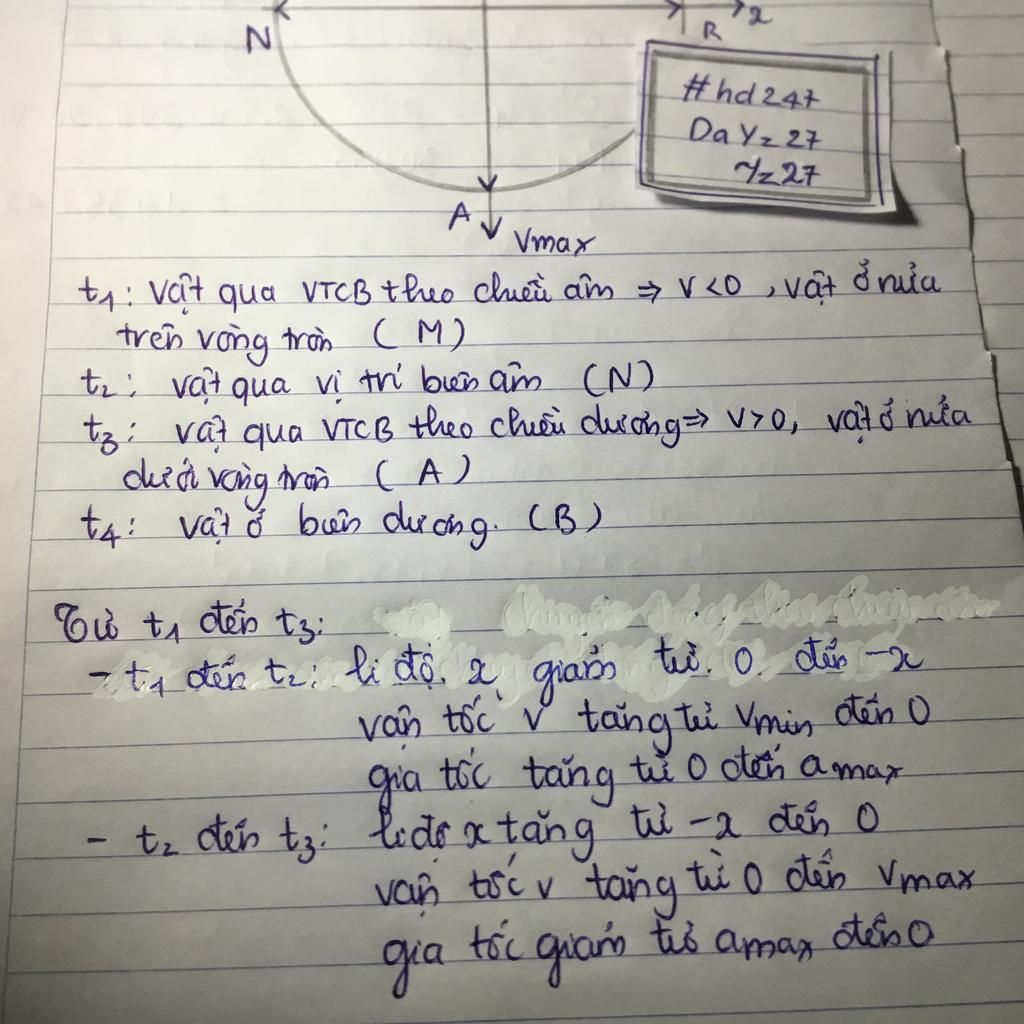 N
x
R
#hd247
Da Yz 27
Yz27
A
Vmax
t1: vật qua VTCB theo chiều âm ⇒ v<0, vật ở nửa
trên vòng tròn (M)
t2: vật qua vị trí biên âm (N)
t3: vật qua VTCB theo chiều dương ⇒ v>0, vật ở nửa
dưới vòng tròn (A)
t4: vật ở biên dương. (B)
Từ t1 đến t3:
- t1 đến t2: li độ x giảm từ 0 đến -x
vận tốc v tăng từ vmin đến 0
gia tốc tăng từ 0 đến amax
- t2 đến t3: li độ x tăng từ -x đến 0
vận tốc v tăng từ 0 đến vmax
gia tốc giảm từ amax đến 0